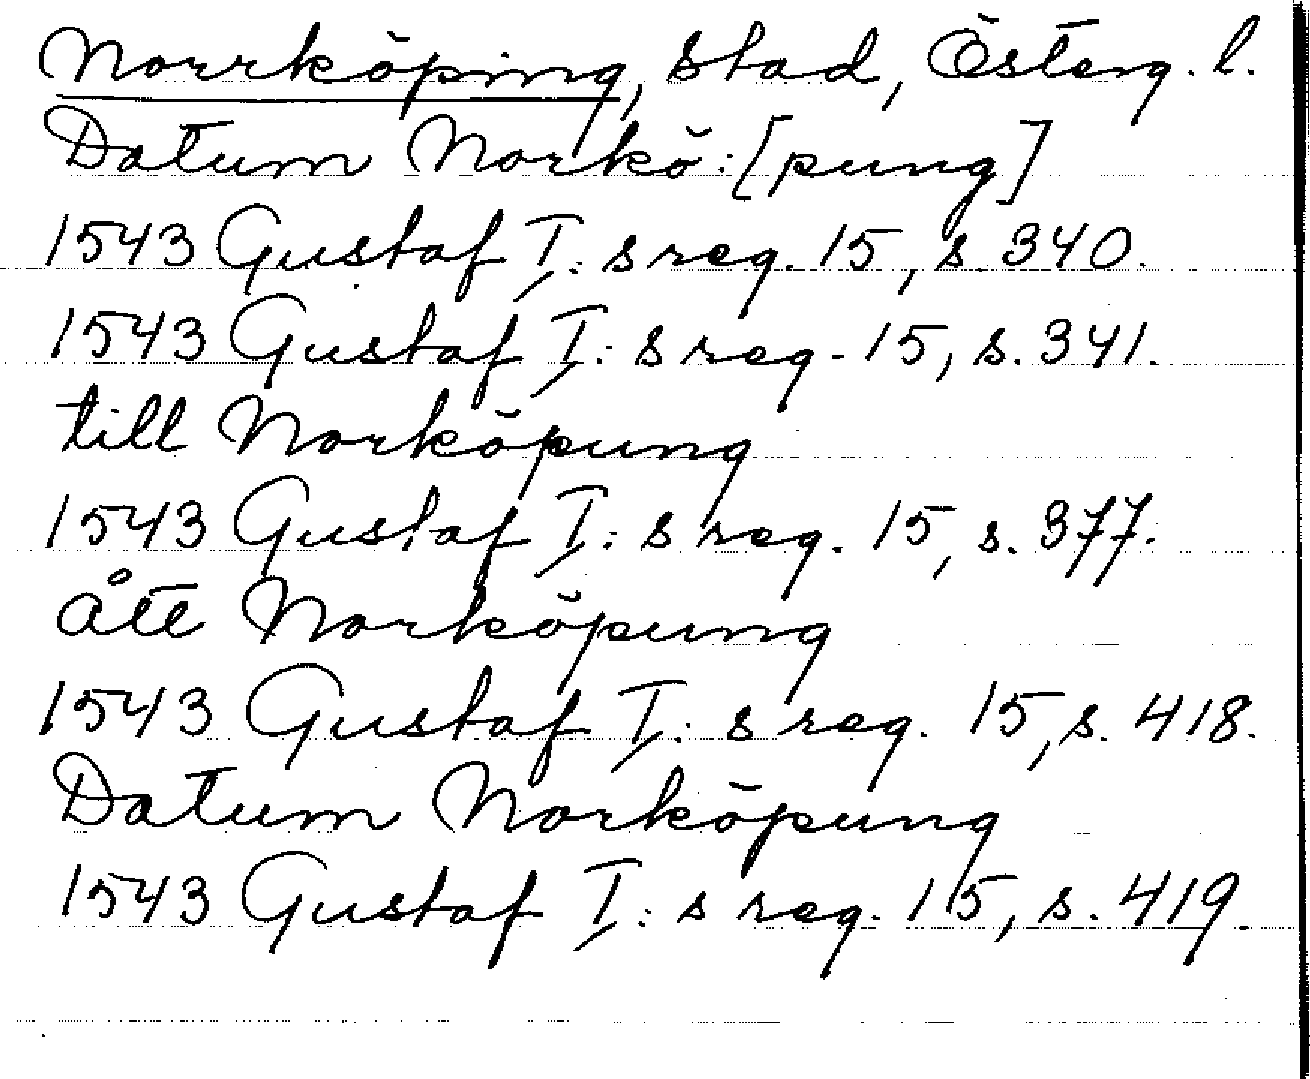 Norrköping, Stad, Österg. l.
Datum Norkö:[pung]
1543 Gustaf I:s reg. 15, s. 340.
1543 Gustaf I:s reg. 15, s. 341.
till Norköpung
1543 Gustaf I:s reg. 15, s. 377.
ått Norköpung
1543 Gustaf I:s reg. 15, s. 418.
Datum Norköpung
1543 Gustaf I:s reg. 15, s. 419.